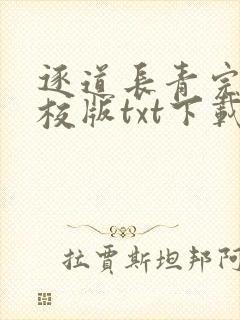 逐道長青完
校版txt下載
拉賈斯坦邦阿